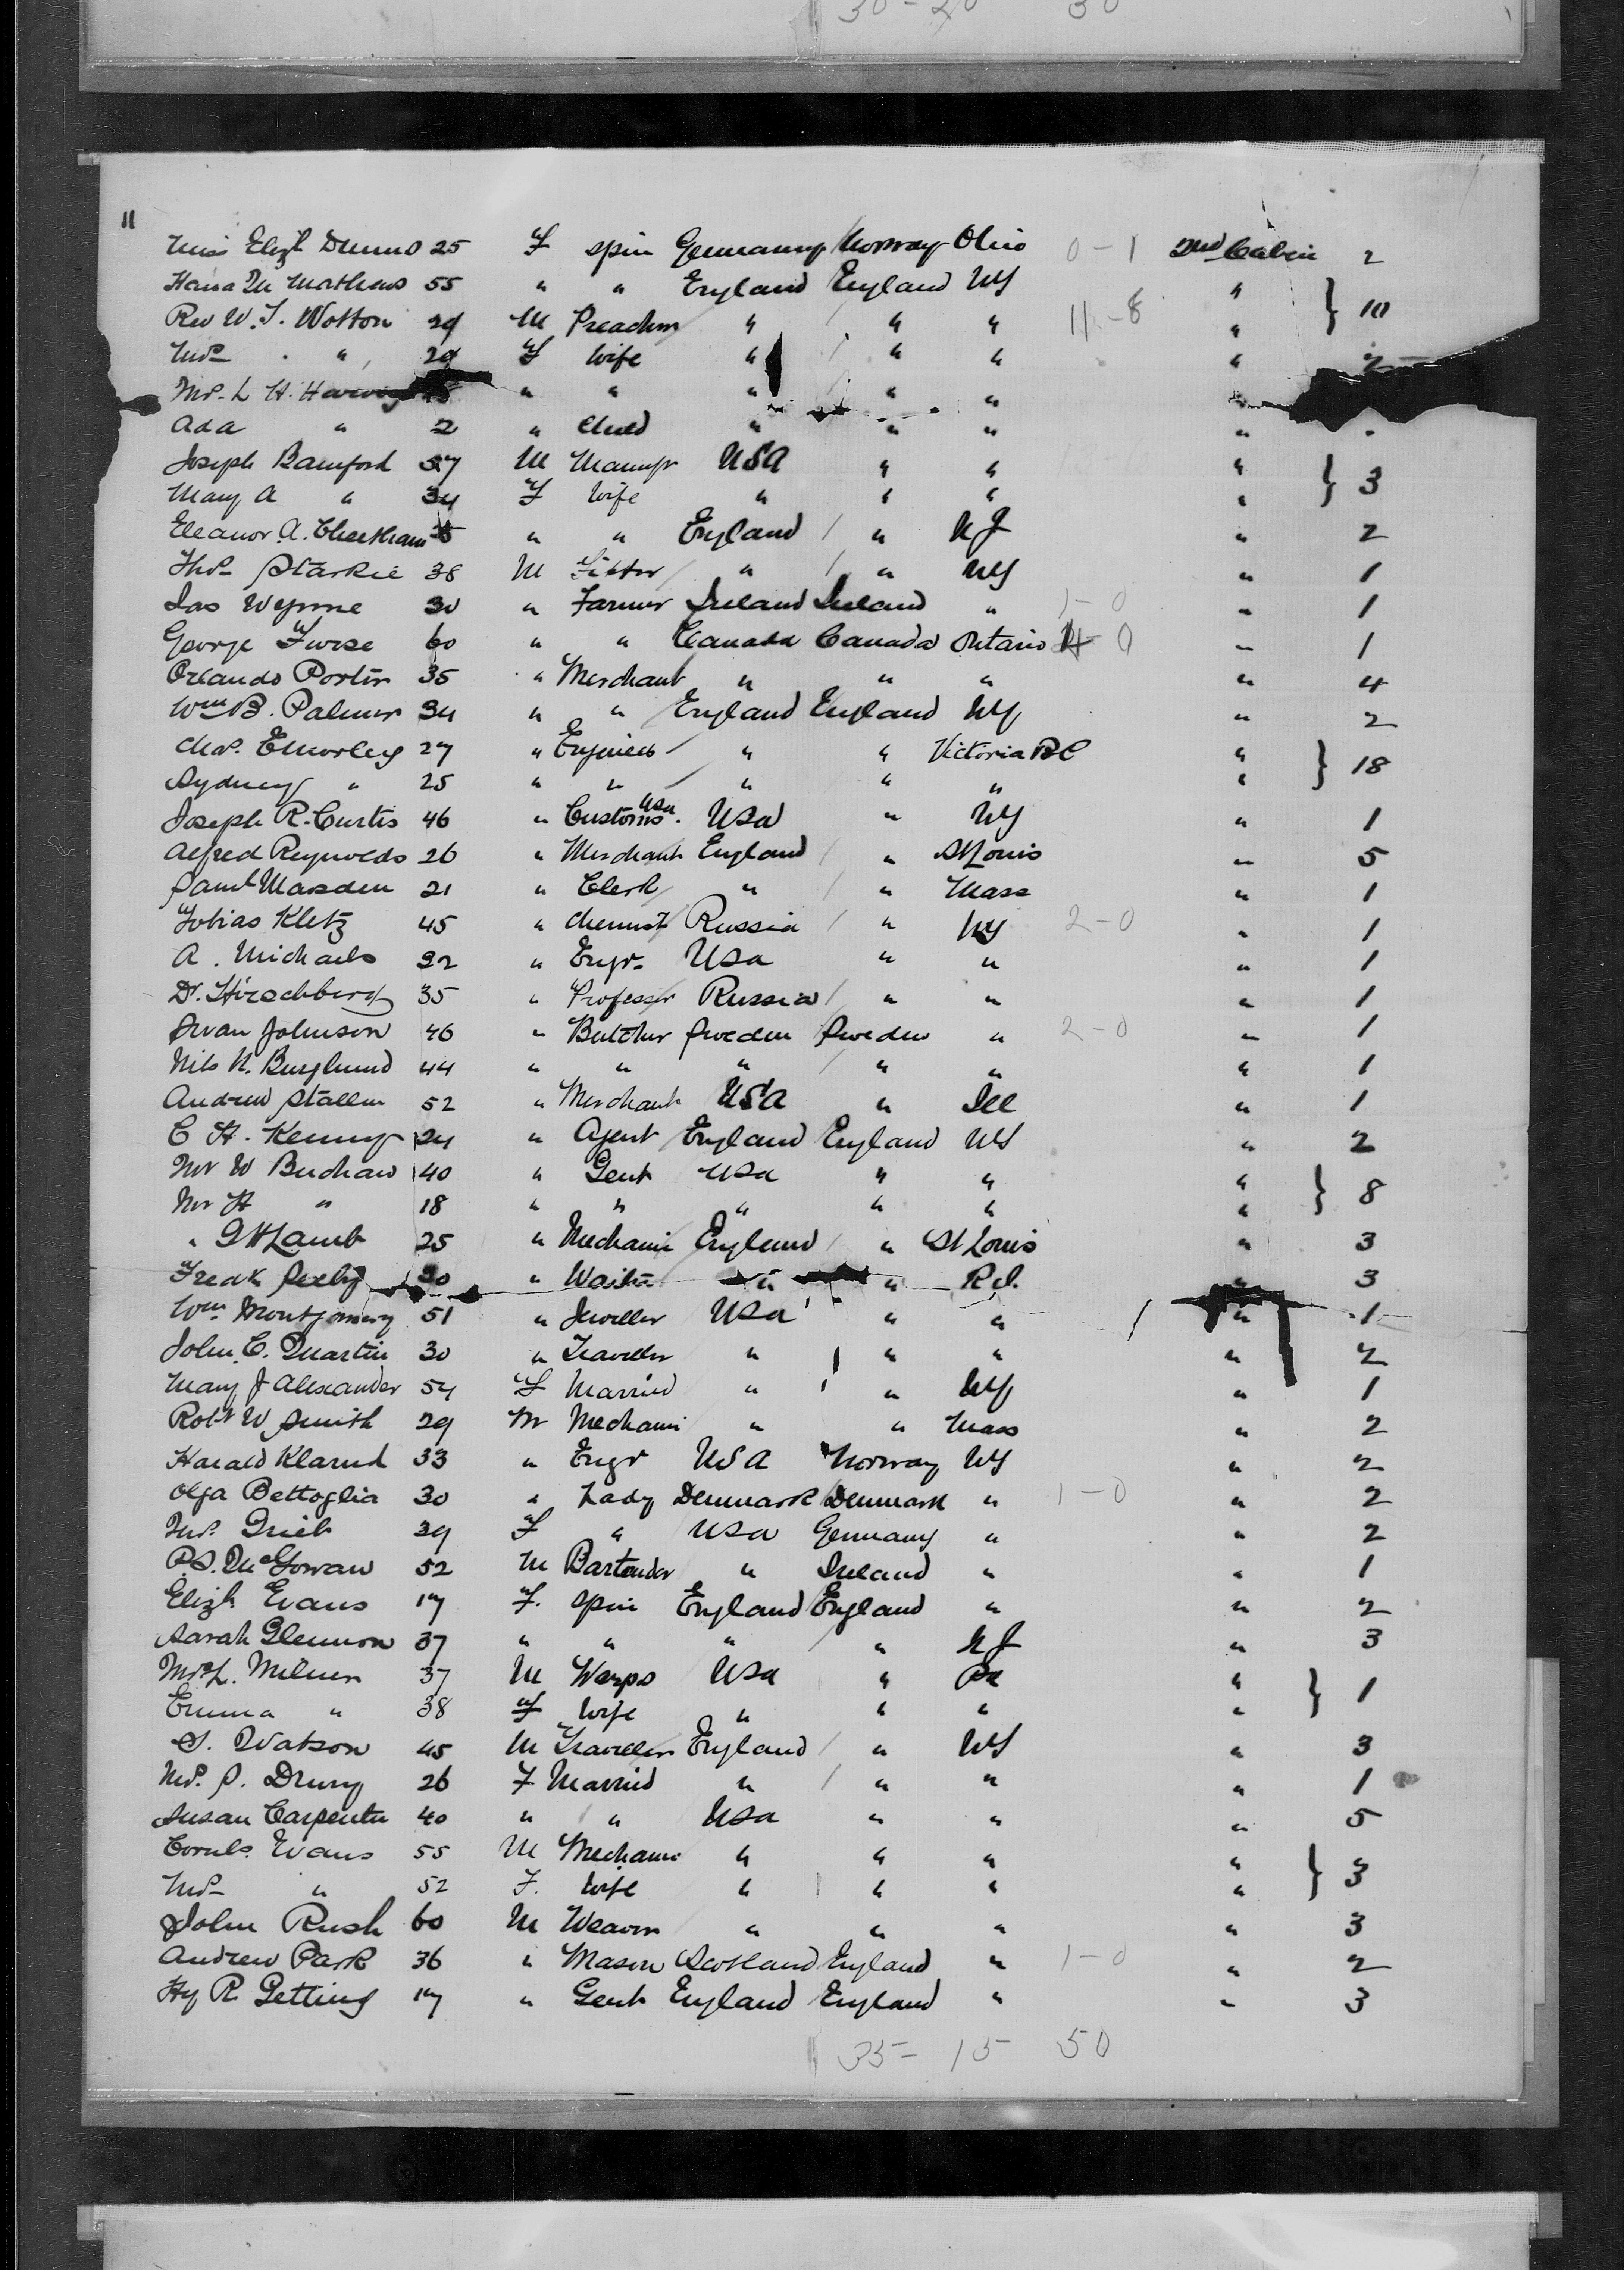 30 - 20 30
11
Miss Elizh Dunno 25 F spin Germany Norway Ohio 0-1 2nd Cabin 2
M Mathews 55 " " England England NY " } 10
Rev W. J. Wotton 29 M Preacher " " " 11-8 "
Mrs " 29 F Wife " " " " 2
Mrs L H. " " " " " "
Ada " 2 " Child " " " "
Joseph Bamford 37 M Manufr USA " " " } 3
Mary A " 34 F Wife " " " "
Eleanor A. Cheetham " " England " NJ " 2
Thos Starkie 38 M Fitter " " NY " 1
Jas Wynne 30 " Farmer Ireland Ireland " 1-0 " 1
George Furse 60 " " Canada Canada Ontario - 0 " 1
Orlando Porter 35 " Merchant " " " " 4
Wm B. Palmer 34 " " England England NY " 2
Chas. E Morley 27 " Engineer " " Victoria BC " } 18
Sydney " 25 " " " " " "
Joseph R. Curtis 46 " Customs USA. USA " NY " 1
Alfred Reynolds 26 " Merchant England " St Louis " 5
Saml Marsden 21 " Clerk " " Mass " 1
Tobias Kletz 45 " Chemist Russia " NY 2-0 " 1
A. Michaels 32 " Engr. USA " " " 1
D. Hirschberg 35 " Professor Russia " " " 1
Swan Johnson 46 " Butcher Sweden Sweden " 2-0 " 1
Nils N. Burglund 44 " " " " " " 1
Andrew Stallen 52 " Merchant USA " Ill " 1
C H. Kenny 24 " Agent England England NY " 2
Mr W Buchaw 40 " Gent USA " " " } 8
Mr H " 18 " " " " " "
" Lamb 25 " Mechanic England " St Louis " 3
Fredk Seeby 30 " Waiter " " R.I. " 3
Wm Montgomery 51 " Jeweller USA " " " 1
John C. Martin 30 " Traveller " " " " 2
Mary J Alexander 54 F Married " " NY " 1
Robt W Smith 29 M Mechanic " " Mass " 2
Harald Klarud 33 " Engr USA Norway NY " 2
Olga Bettoglia 30 " Lady Denmark Denmark " 1-0 " 2
Mrs. Grieb 39 F " USA Germany " " 2
P.S. McGowan 52 M Bartender " Ireland " " 1
Elizh Evans 17 F. spin England England " " 2
Sarah Glennon 37 " " " " NJ " 3
L. Milner 37 M USA " Pa " } 1
Emma " 38 F Wife " " " "
S. Watson 45 M Traveller England " NY " 3
Mrs. S. Drury 26 F Married " " " " 1
Susan Carpenter 40 " " USA " " " 5
Cornls. Evans 55 M Mechanic " " " " } 3
Mrs " 52 F. Wife " " " "
John Rush 60 M Weaver " " " " 3
Andrew Park 36 " Mason Scotland England " 1-0 " 2
Hy R. Getting 17 " Gent England England " " 3
35 - 15 50